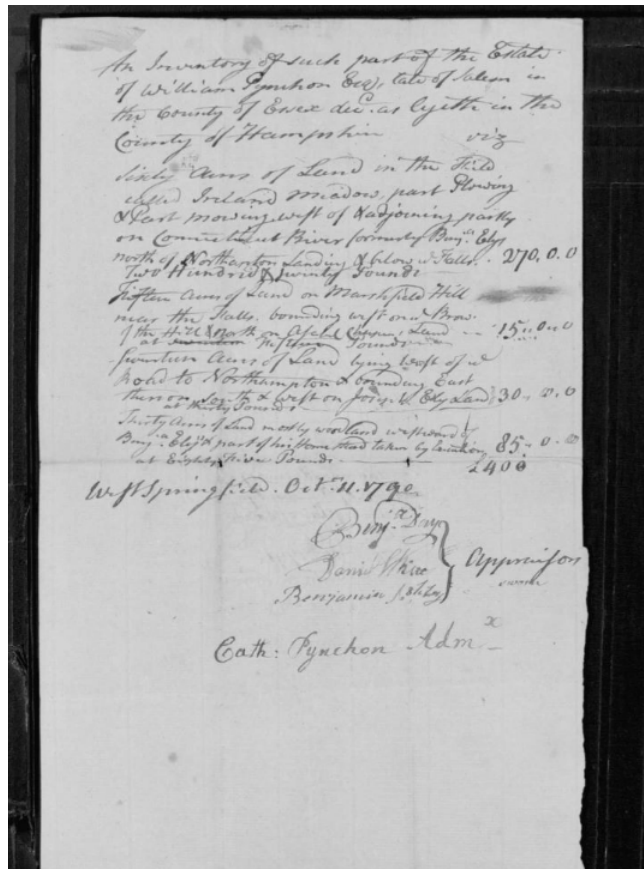 An Inventory of such part of the Estate
of William Pynchon Esq, late of Salem in
the County of Essex decd. as lyeth in the
County of Hampshire viz
Sixty Acres of Land in the Field
called Ireland Meadow, part Plowing
& Part mowing west of & adjoining partly
on Connecticut River formerly Benjn. Elys
north of Northampton Landing & below ye Falls. 270,0.0
Two Hundred & Seventy Pounds
Fifteen Acres of Land on Marshfield Hill
near the Falls, bounding west on ye Brow
of the Hill & North on Land 15,,0,,0
at Fifteen Pounds
fourteen Acres of Land lying West of ye
Road to Northampton & bounding East
thereon South & West on Joseph Ely Land 30,,0,0
at thirty Pounds
Thirty Acres of Land mostly woodland westward of
Benjn. Elys & part of his Home stead taken by Execution 85,,0,0
at Eighty five Pounds
£400
West Springfield. Octr. 11. 1790
Benja.
Benjamin
Appraisors
Cath: Pynchon Admx